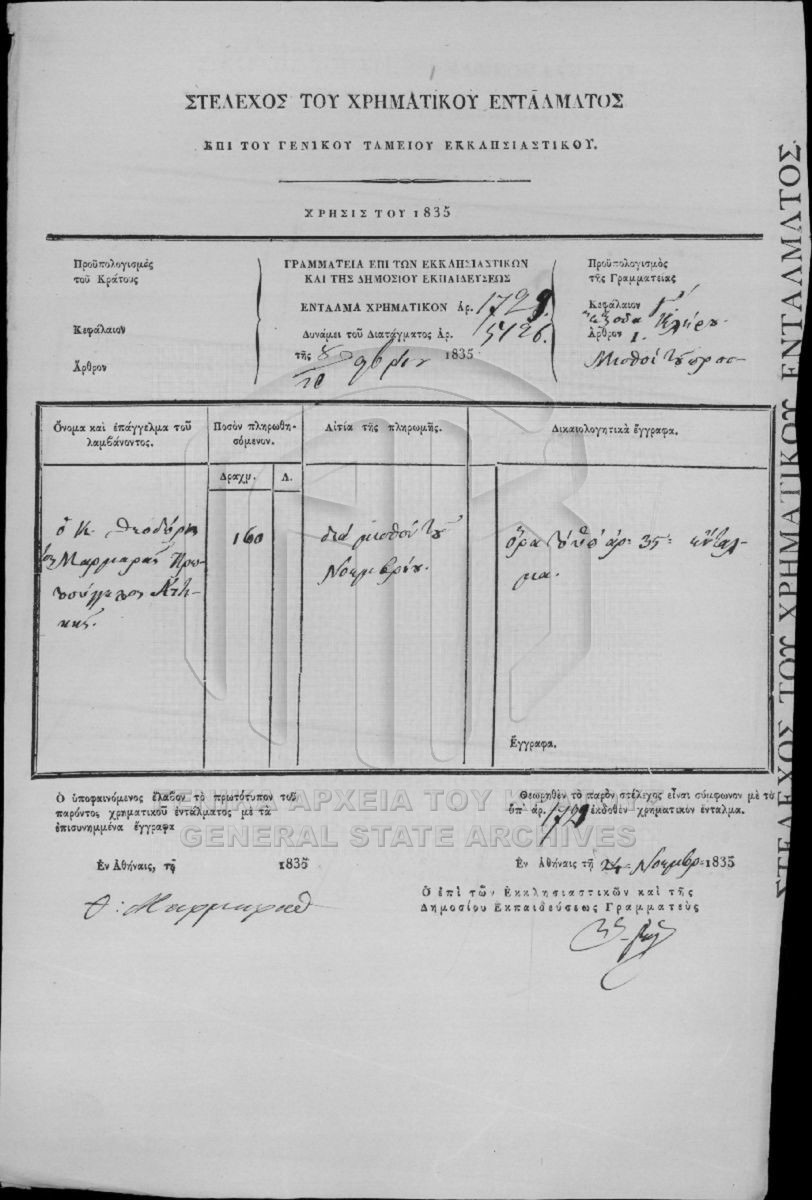 ΣΤΕΛΕΧΟΣ ΤΟΥ ΧΡΗΜΑΤΙΚΟΥ ΕΝΤΑΛΜΑΤΟΣ
ΕΠΙ ΤΟΥ ΓΕΝΙΚΟΥ ΤΑΜΕΙΟΥ ΕΚΚΛΗΣΙΑΣΤΙΚΟΥ.
ΧΡΗΣΙΣ ΤΟΥ 1835
Προϋπολογισμὸς
τοῦ Κράτους
Κεφάλαιον
Ἄρθρον
ΓΡΑΜΜΑΤΕΙΑ ΕΠΙ ΤΩΝ ΕΚΚΛΗΣΙΑΣΤΙΚΩΝ
ΚΑΙ ΤΗΣ ΔΗΜΟΣΙΟΥ ΕΚΠΑΙΔΕΥΣΕΩΣ
ΕΝΤΑΛΜΑ ΧΡΗΜΑΤΙΚΟΝ Ἀρ. 1729.
Δυνάμει τοῦ Διατάγματος Ἀρ. 5126.
τῆς 8/20 9βρίου 1835
Προϋπολογισμὸς
τῆς Γραμματείας
Κεφάλαιον Γ'
Ἔξοδα Κλήρου.
Ἄρθρον 1.
Μισθοὶ
Ὄνομα καὶ ἐπάγγελμα τοῦ
λαμβάνοντος.
Ποσὸν πληρωθη-
σόμενον.
Αἰτία τῆς πληρωμῆς.
Δικαιολογητικὰ ἔγγραφα.
Δραχμ.
Λ.
ὁ Κ. Θεοδώρη
τος Μαρμαρᾶς Πρω
τοσύγγελος Ἀττι-
κῆς.
160
διὰ μισθόν του
Νοεμβρίου.
ὅρα τὸ ὑπ' ἀρ: 35: ἔνταλ-
μα.
Ἔγγραφα.
Ὁ ὑποφαινόμενος ἔλαβον τὸ πρωτότυπον τοῦ
παρόντος χρηματικοῦ ἐντάλματος μὲ τὰ
ἐπισυνημμένα ἔγγραφα
Ἐν Ἀθήναις, τῇ 1835
Θ: Μαρμαρᾶς
Θεωρηθὲν τὸ παρὸν στέλεχος εἶναι σύμφωνον μὲ τὸ
ὑπ' ἀρ. 1729 ἐκδοθὲν χρηματικὸν ἔνταλμα.
Ἐν Ἀθήναις τῇ 24 Νοεμβρ: 1835
Ὁ ἐπὶ τῶν Ἐκκλησιαστικῶν καὶ τῆς
Δημοσίου Ἐκπαιδεύσεως Γραμματεὺς
ΣΤΕΛΕΧΟΣ ΤΟΥ ΧΡΗΜΑΤΙΚΟΥ ΕΝΤΑΛΜΑΤΟΣ.
ΓΕΝΙΚΑ ΑΡΧΕΙΑ ΤΟΥ ΚΡΑΤΟΥΣ
GENERAL STATE ARCHIVES